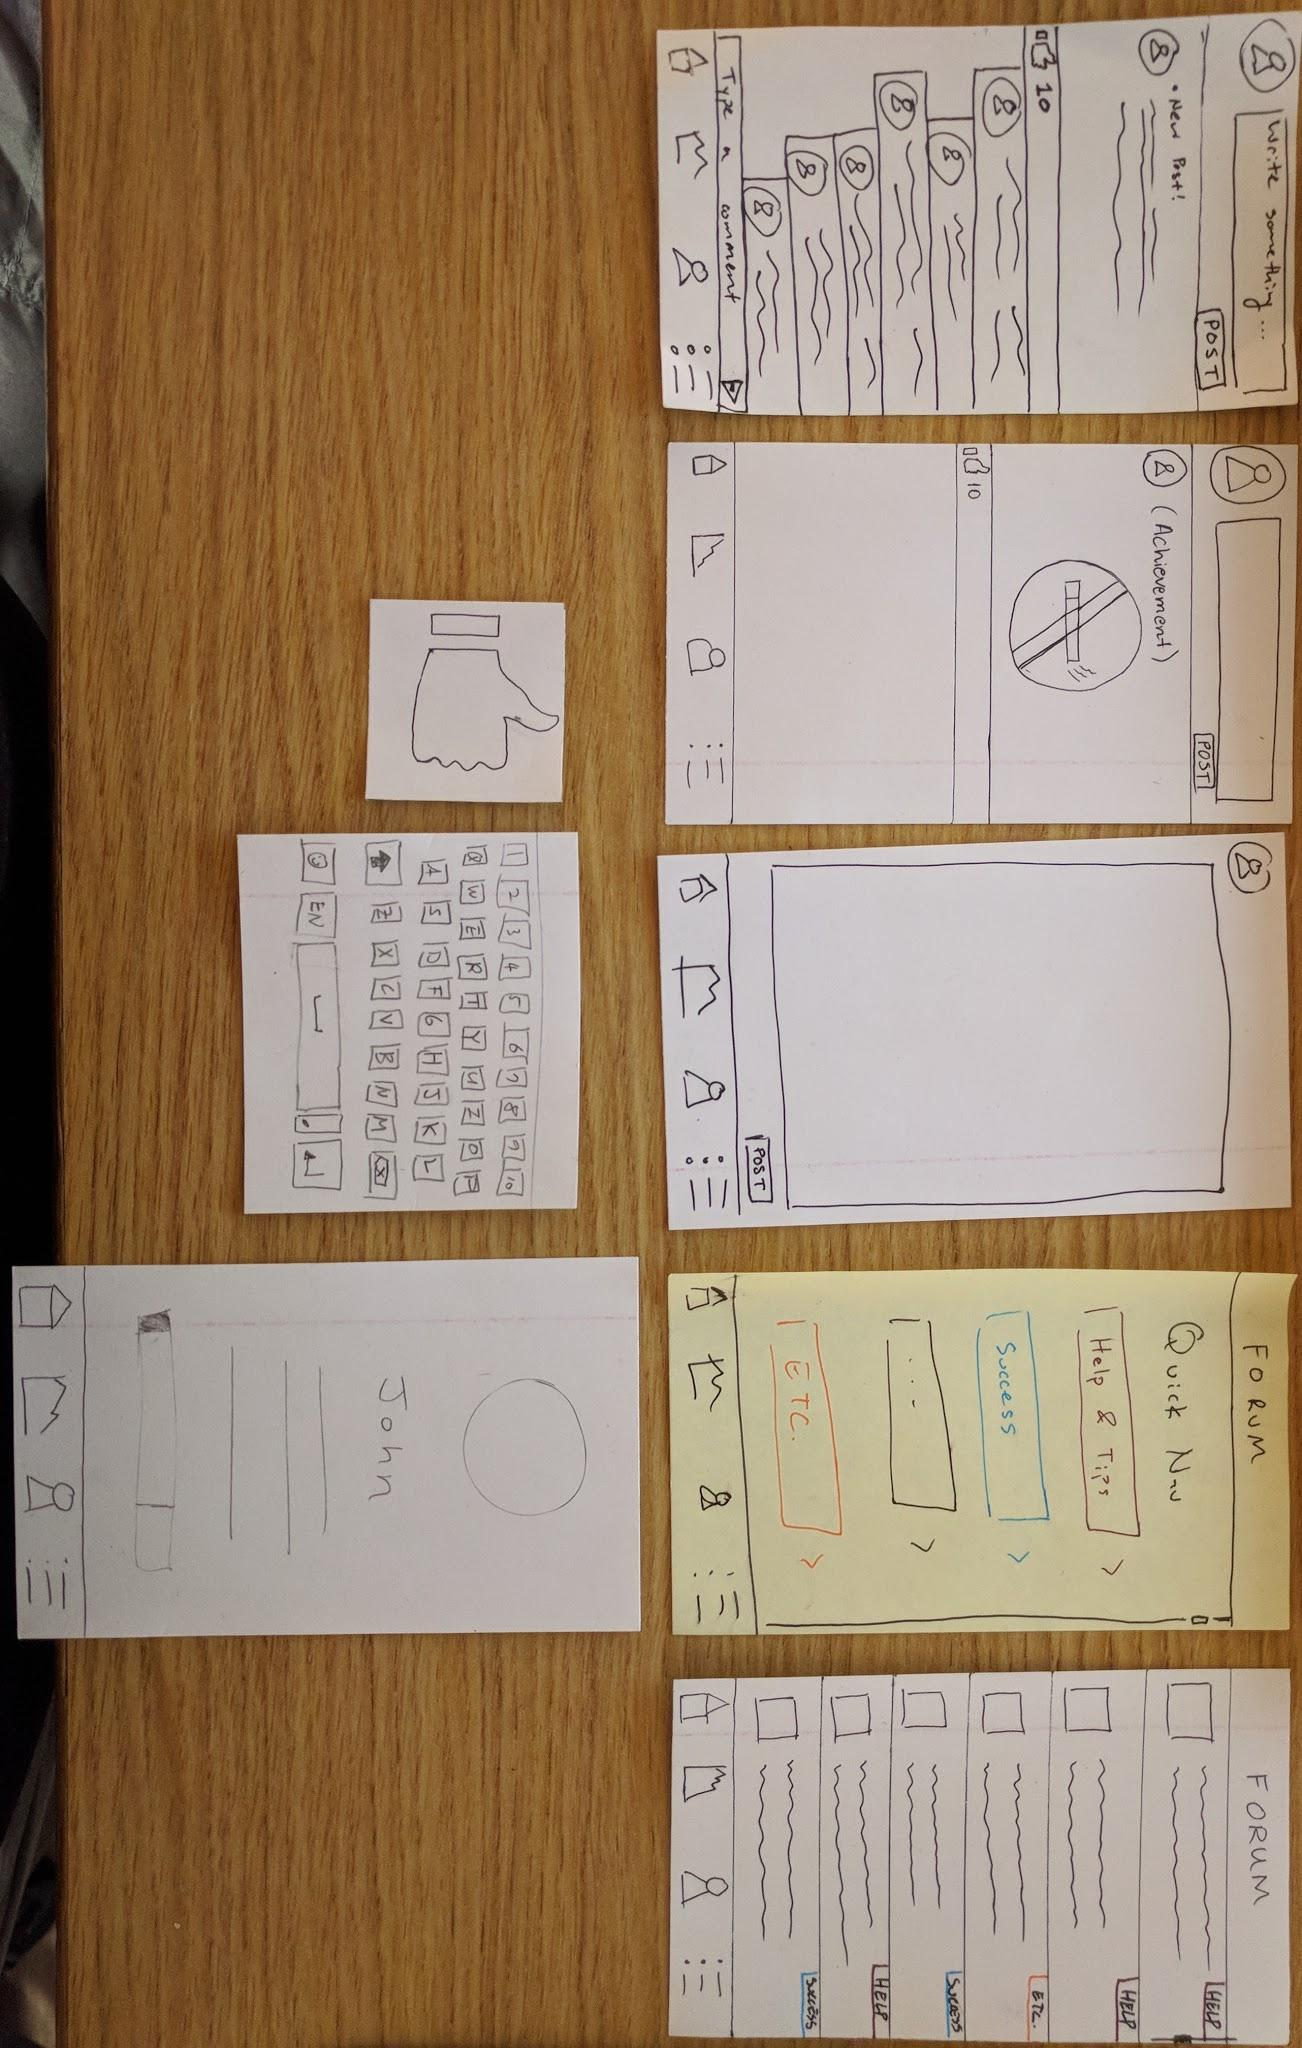 Write something...
POST
• New Post!
10
Type a comment
(Achievement)
POST
10
POST
FORUM
Quick Nav
Help & Tips >
Success >
... >
ETC. >
FORUM
HELP
HELP
ETC.
SUCCESS
HELP
SUCCESS
1 2 3 4 5 6 7 8 9 10
Q W E R T Y U I O P
A S D F G H J K L
Z X C V B N M
EN .
John